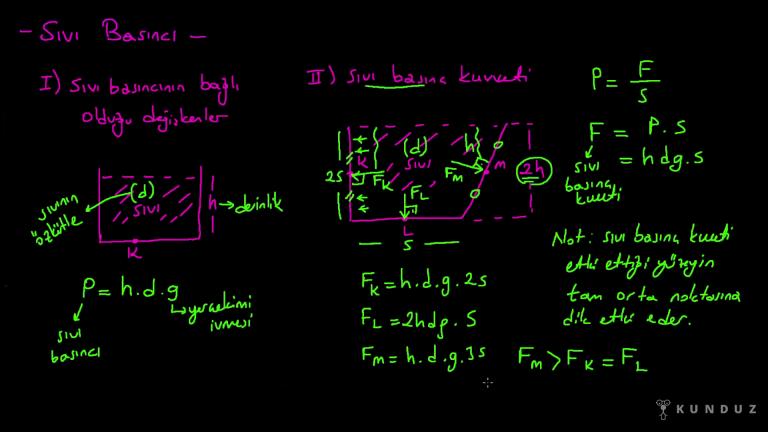 - Sıvı Basıncı -
I) Sıvı basıncının bağlı
olduğu değişkenler
(d)
sıvı
sıvının
özkütle
h → derinlik
K
P = h.d.g
yerçekimi
ivmesi
sıvı
basıncı
II) sıvı basınç kuvveti
K
(d)
sıvı
h
M
2h
2S
F_K
F_L
F_M
L
S
F_K = h.d.g.2s
F_L = 2hdg.S
F_M = h.d.g.3s
F_M > F_K = F_L
P = F/S
F = P.S
= hdg.s
sıvı
basınç
kuvveti
Not: sıvı basınç kuvveti
etki ettiği yüzeyin
tam orta noktasına
dik etki eder.
KUNDUZ